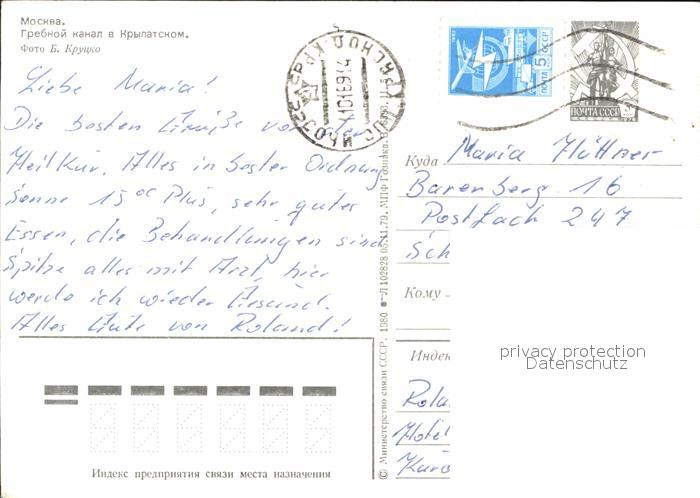 Москва.
Гребной канал в Крылатском.
Фото Б. Круцко
Liebe Maria!
Die besten Grüße von der
Heil Kur. Alles in bester Ordnung
Sonne 15 °C Plus, sehr gutes
Essen, die Behandlungen sind
Spitze alles mit Arzt, hier
werde ich wieder Gesund.
Alles Gute von Roland!
ПОЧТА СССР
5
ПОЧТА СССР
Куда Maria Hüttner
Barenberg 16
Postfach 247
Sch
Кому
Индек
Rola
Hotel
Kuro
privacy protection
Datenschutz
Индекс предприятия связи места назначения
© Министерство связи СССР, 1980 Л 102828 05.11.79. МПФ Гознака.